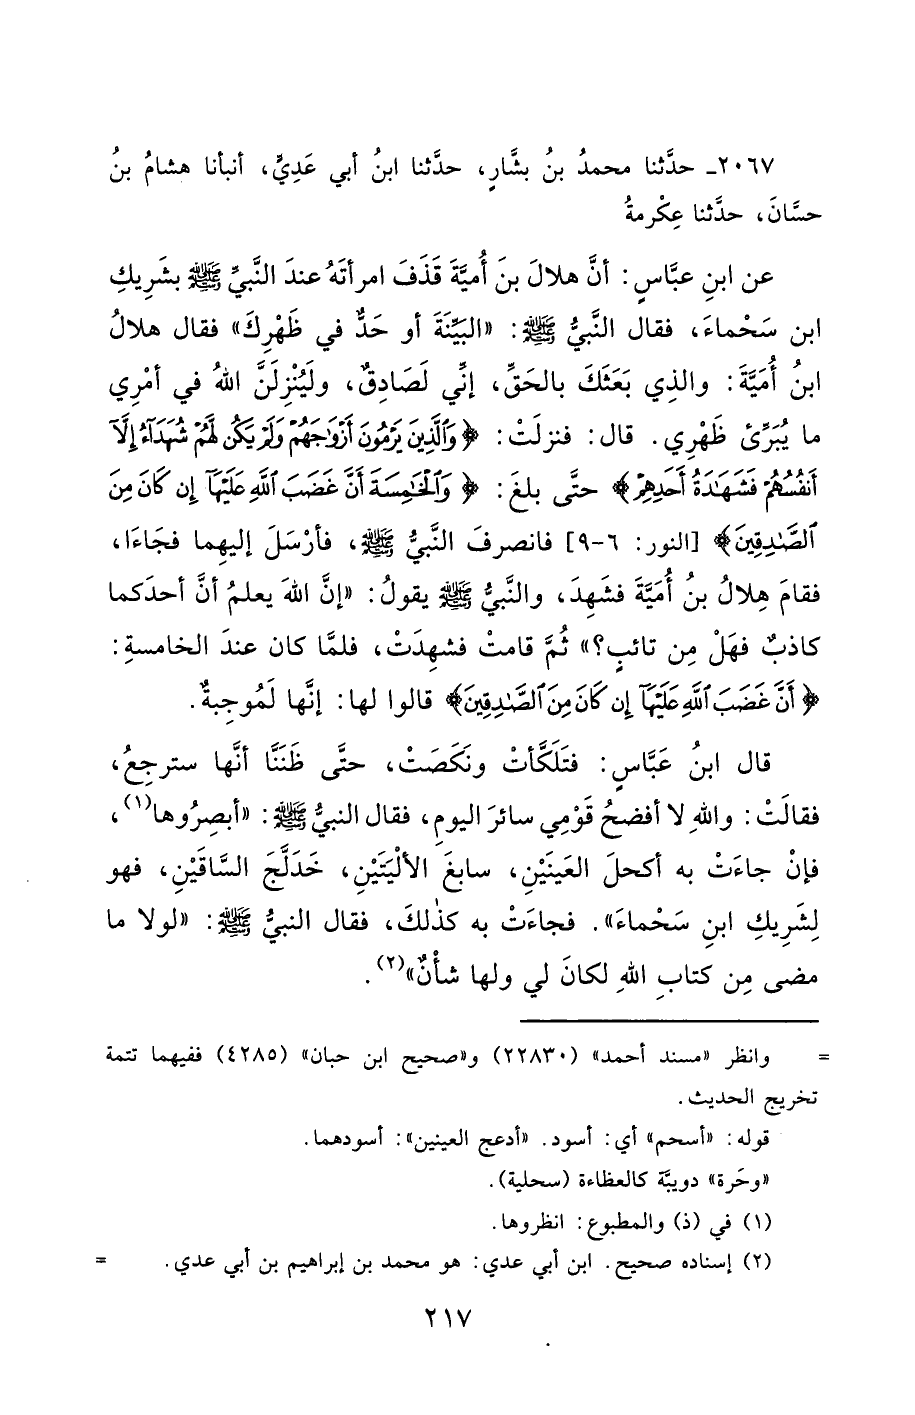 ٢٠٦٧ـ حدَّثنا محمدُ بنُ بشَّارٍ، حدَّثنا ابنُ أبي عَدِيٍّ، أنبأنا هشامُ بنُ
حسَّانَ، حدَّثنا عِكْرمةُ
عن ابنِ عبَّاسٍ: أنَّ هلالَ بنَ أُميَّةَ قَذَفَ امرأتَهُ عندَ النَّبيِّ ﷺ بشَرِيكِ
ابن سَحْماءَ، فقال النَّبيُّ ﷺ: «البَيِّنَةَ أو حَدٌّ في ظَهْرِكَ» فقال هلالُ
ابنُ أُمَيَّةَ: والذي بَعَثَكَ بالحَقِّ، إنِّي لَصَادِقٌ، ولَيُنْزِلَنَّ اللهُ في أمْرِي
ما يُبَرِّئ ظَهْرِي. قال: فنزلَتْ: ﴿وَٱلَّذِينَ يَرْمُونَ أَزْوَٰجَهُمْ وَلَمْ يَكُن لَّهُمْ شُهَدَآءُ إِلَّآ
أَنفُسُهُمْ فَشَهَـٰدَةُ أَحَدِهِمْ﴾ حتَّى بلغَ: ﴿وَٱلْخَـٰمِسَةَ أَنَّ غَضَبَ ٱللَّهِ عَلَيْهَآ إِن كَانَ مِنَ
ٱلصَّـٰدِقِينَ﴾ [النور: ٦-٩] فانصرفَ النَّبيُّ ﷺ، فأرْسَلَ إليهما فجَاءَا،
فقامَ هِلالُ بنُ أُمَيَّةَ فشَهِدَ، والنَّبيُّ ﷺ يقولُ: «إنَّ اللهَ يعلمُ أنَّ أحدَكما
كاذبٌ فهَلْ مِن تائبٍ؟» ثُمَّ قامتْ فشهِدَتْ، فلمَّا كان عندَ الخامسةِ:
﴿أَنَّ غَضَبَ ٱللَّهِ عَلَيْهَآ إِن كَانَ مِنَ ٱلصَّـٰدِقِينَ﴾ قالوا لها: إنَّها لَمُوجبةٌ.
قال ابنُ عَبَّاسٍ: فتَلَكَّأتْ ونَكَصَتْ، حتَّى ظَنَنَّا أنَّها سترجعُ،
فقالَتْ: واللهِ لا أفضحُ قَوْمِي سائرَ اليومِ، فقال النبيُّ ﷺ: «أبصِرُوها(١)،
فإنْ جاءَتْ به أكحلَ العَينَيْنِ، سابغَ الألْيَتَيْنِ، خَدَلَّجَ السَّاقَيْنِ، فهو
لِشَرِيكِ ابنِ سَحْماءَ». فجاءَتْ به كذٰلكَ، فقال النبيُّ ﷺ: «لولا ما
مضى مِن كتابِ اللهِ لكانَ لي ولها شأْنٌ»(٢).
= وانظر «مسند أحمد» (٢٢٨٣٠) و«صحيح ابن حبان» (٤٢٨٥) ففيهما تتمة
تخريج الحديث.
قوله: «أسحم» أي: أسود. «أدعج العينين»: أسودهما.
«وحَرة» دويبَّة كالعظاءة (سحلية).
(١) في (ذ) والمطبوع: انظروها.
(٢) إسناده صحيح. ابن أبي عدي: هو محمد بن إبراهيم بن أبي عدي. =
٢١٧